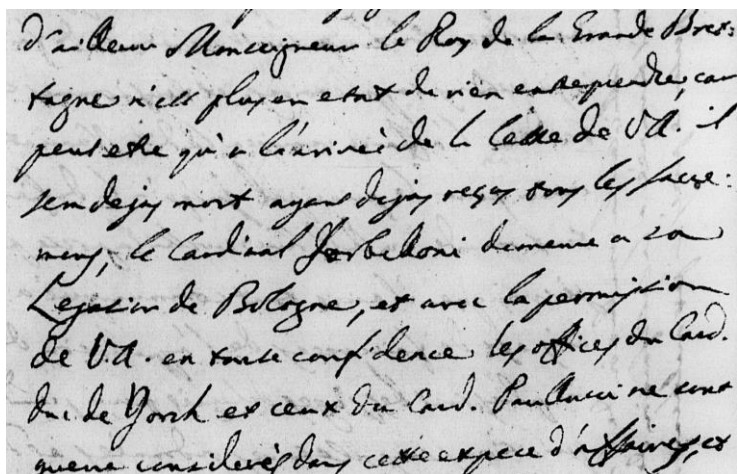 d'ailleurs Monseigneur le Roy de la Grande Bret:
tagne n'est plus en etat de rien entreprendre, car
peut etre qu'a l'arrivée de la lettre de V.A. il
sera dejay mort ayant dejay reçu tous les sacre:
mens, le Cardinal Serbelloni demeure a sa
Legation de Bologne, et avec la permission
de V.A. en toute confidence les offices du Card.
duc de Yorck et ceux du Card. Paullucci ne sont
guere considerés dans cette espece d'affaires, et